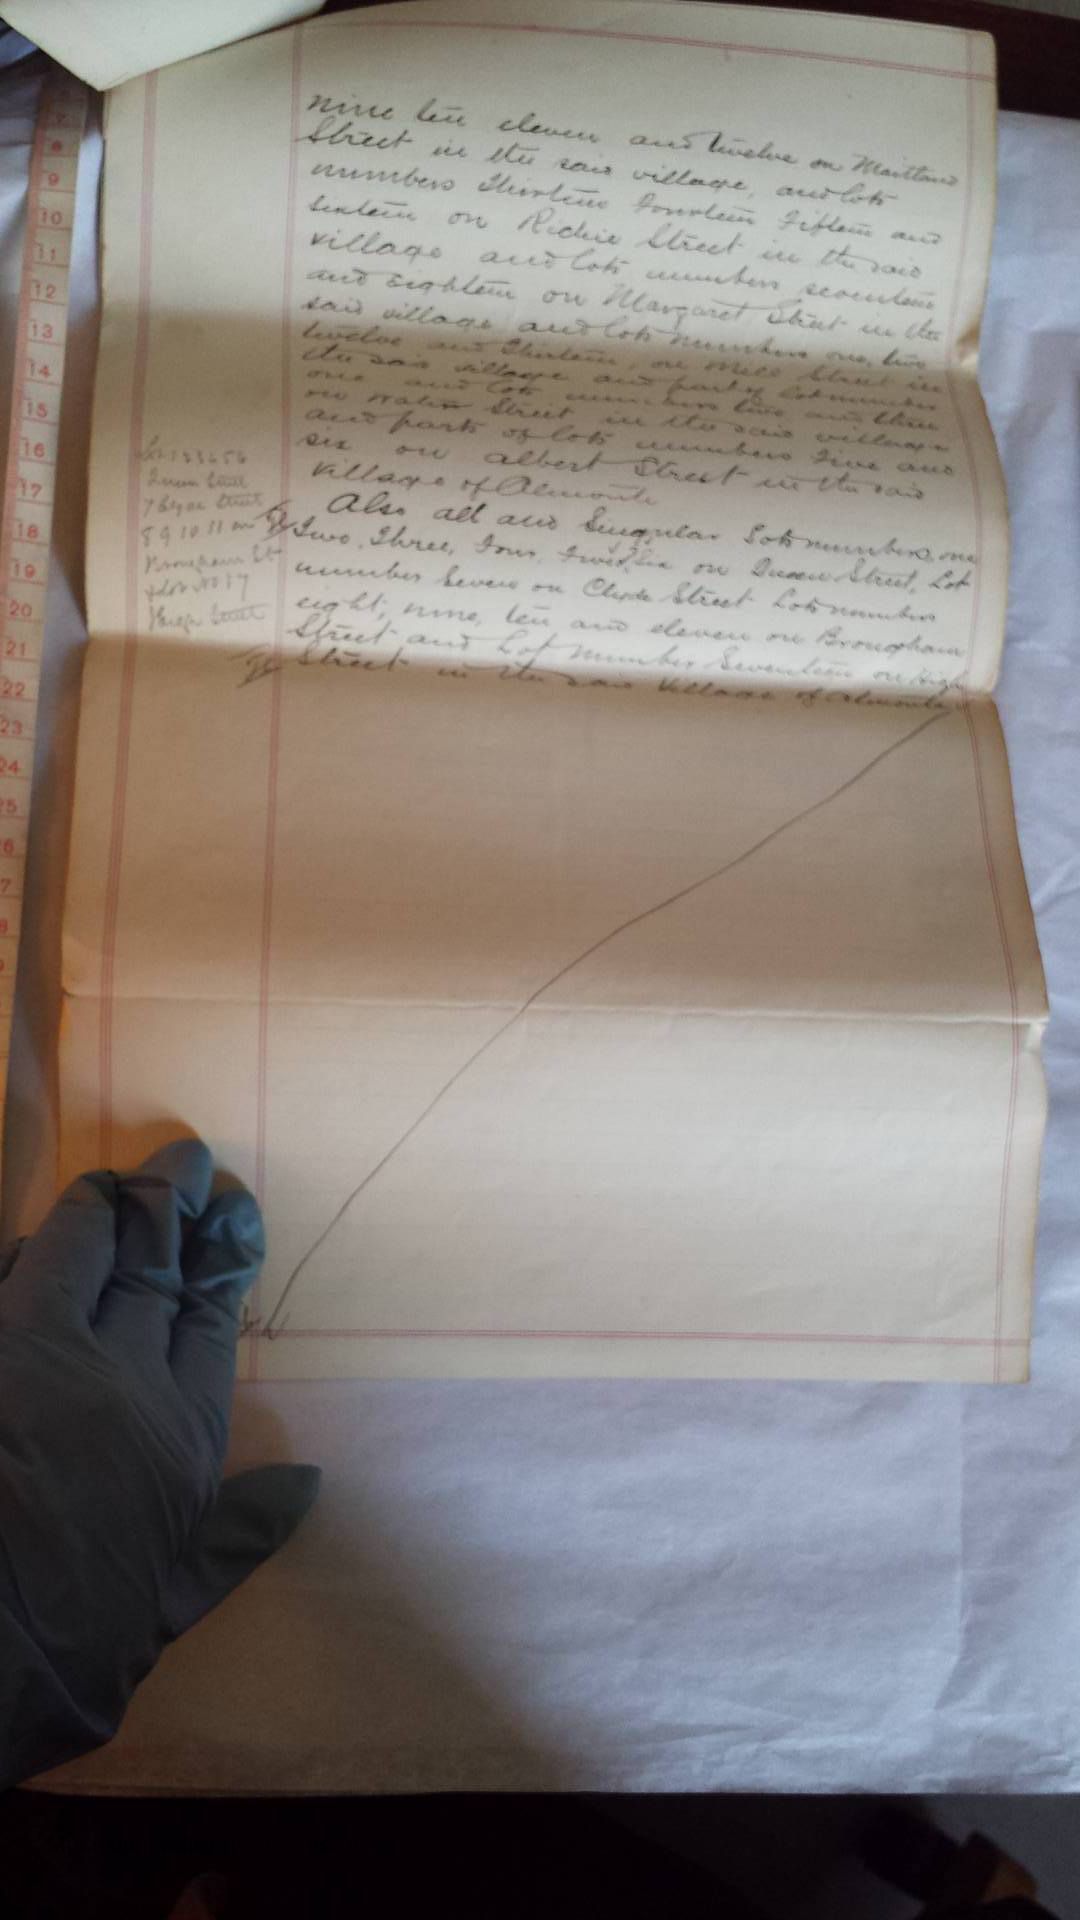 nine ten eleven and twelve on Maitland
Street in the said village, and lots
numbers Thirteen Fourteen Fifteen and
sixteen on Richie Street in the said
village and lots numbers seventeen
and Eighteen on Margaret Street in the
said village and lots numbers one, two
twelve and Thirteen, on Mill Street in
the said village and part of lot number
one and lots numbers two and three
on water Street in the said village
and parts of lots numbers Five and
six on albert Street in the said
village of Almonte
Also all and Singular Lots numbers one
Two, Three, Four, Five, Six on Queen Street, Lot
number Seven on Clyde Street Lots numbers
eight, nine, ten and eleven on Brougham
Street and Lot Number Seventeen on High
Street in the said Village of Almonte
Lots 1 2 3 4 5 6
Queen Street
7 Clyde Street
8 9 10 11 on
Brougham St
& Lot No 17
High Street
7
8
9
10
11
12
13
14
15
16
17
18
19
20
21
22
23
24
25
6
7
8
9